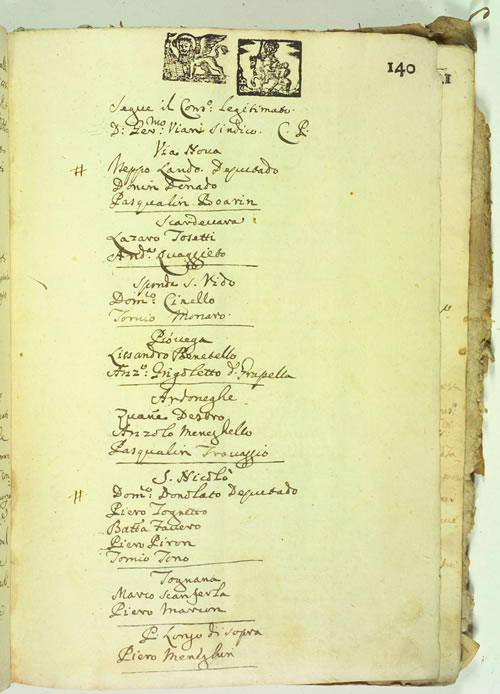 140
Segue il Cons.º Legitimato.
D: Zer.mo Viari Sindico. C. P.
Via Noua
# Neppo Lando. Deputado
Donin Donado
Pasqualin Boarin
Scardeuara
Lazaro Tosatti
And.a Quaggieto
Sponda S. Vido
Dom.co Cinello
Tomio Monaro.
Piouega
Lissandro Benetello
Anz.º: Grigoletto d.º Grapella
Ardoneghe
Zuane Destro
Anzolo Meneghello
Pasqualin Trauaggio
S. Nicolò
# Dom.co: Donolato Deputado
Piero Tognetto
Batta Fauero
Piero Piron
Tomio Tono
Tognana
Marco Scanferla
Piero Marcon
P. Longo di sopra
Piero Meneghin